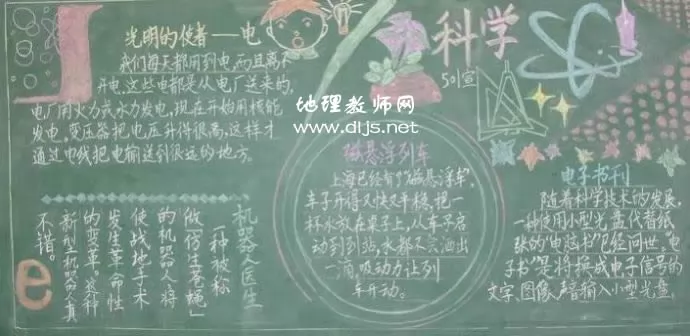 光明的使者——电
我们每天都用到电,而且离不
开电,这些电都是从电厂送来的,
电厂用火力或水力发电,现在开始用核能
发电,变压器把电压升得很高,这样才
通过电线把电输送到很远的地方。
科学
501宣
地理教师网
www.dljs.net
磁悬浮列车
上海已经有了"磁悬浮车",
车子开得又快又平稳,把一
杯水放在桌子上,从车子启
动到到站,水都不会洒出
一滴,吸动力让列
车开动。
电子书刊
随着科学技术的发展,
一种使用小型光盘代替纸
张的"电脑书"已经问世,"电
子书"是将换成电子信号的
文字、图像、声音输入小型光盘,
机器人医生
一种被称
做"仿生苍蝇"
的机器人将
使战地手术
发生革命性
的变革。这种
新型机器人真
不错。
e